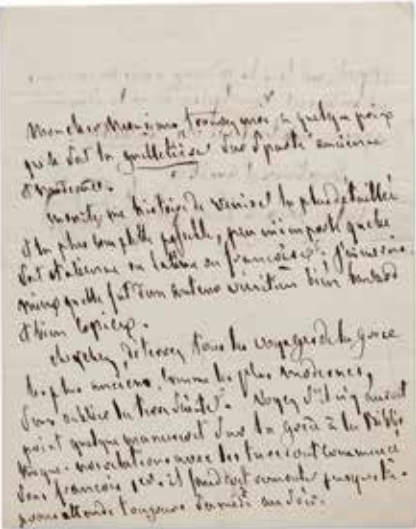 Mon cher Monsieur, trouvez moi, a quelque prix
que ce soit la guilletière sur Sparte ancienne
et moderne.
ensuite, une histoire de Venise la plus detaillée
et la plus complette possible, peu m'importe quelle
soit italienne ou latine ou françoise. j'aimerois
mieux quelle fut d'un auteur vénitien bien bavard
et bien copieux.
de trouver tous les voyages de la Grece
les plus anciens, comme les plus modernes,
sans oublier la terre Sainte. Voyez s'il n'y auroit
point quelque manuscrit sur la Grèce à la Biblio
thèque. nos relations avec les turcs ont commencé
sous françois 1er. il faudroit remonter jusques là.
je vous attends toujours Samedi au soir.